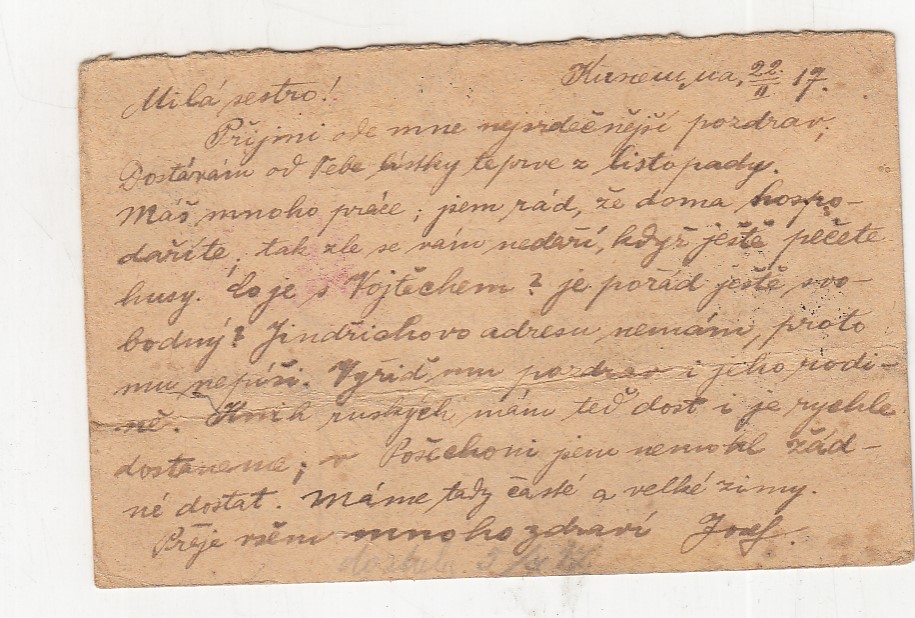 Milá sestro!
22/II 17.
Přijmi ode mne nejsrdečnější pozdrav;
Dostávám od Tebe lístky teprve z listopady.
Máš mnoho práce; jsem rád, že doma hospo-
daříte; tak zle se vám nedaří, když ještě pečete
husy. Co je s Vojtěchem? je pořád ještě svo-
bodný? Jindřichovo adresu nemám, proto
mu nepíši. Vyřiď mu pozdrav i jeho rodi-
ně. Knih ruských mám teď dost i je rychle
dostaneme; v Pošechoni jsem nemohl žád-
né dostat. Máme tady časté a velké zimy.
Přeje všem mnoho zdraví Josef.